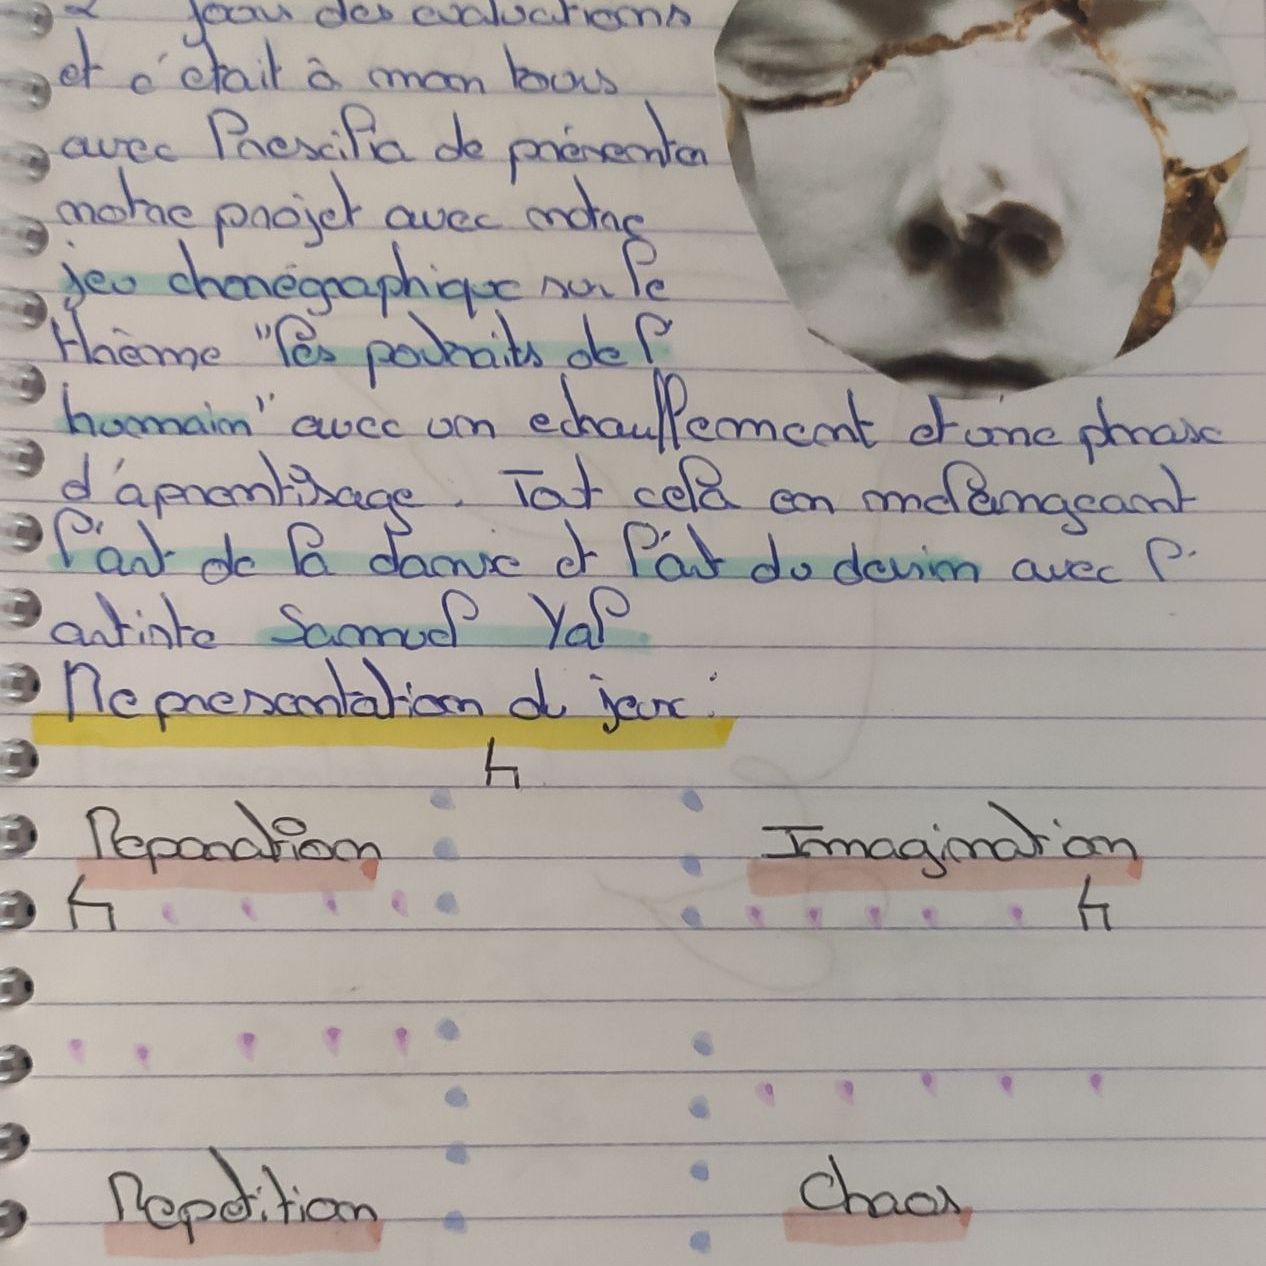 jour des évaluations
et c'était à mon tour
avec Prescilia de présenter
notre projet avec notre
jeu chorégraphique sur le
thème "les portraits de l'
humain" avec un echauffement et une phrase
d'aprentisage. Tout cela en mélangeant
l'art de la danse et l'art du dessin avec l'
artiste Samuel Yal
Representation du jeux :
Reparation
Imagination
Repetition
Chaos